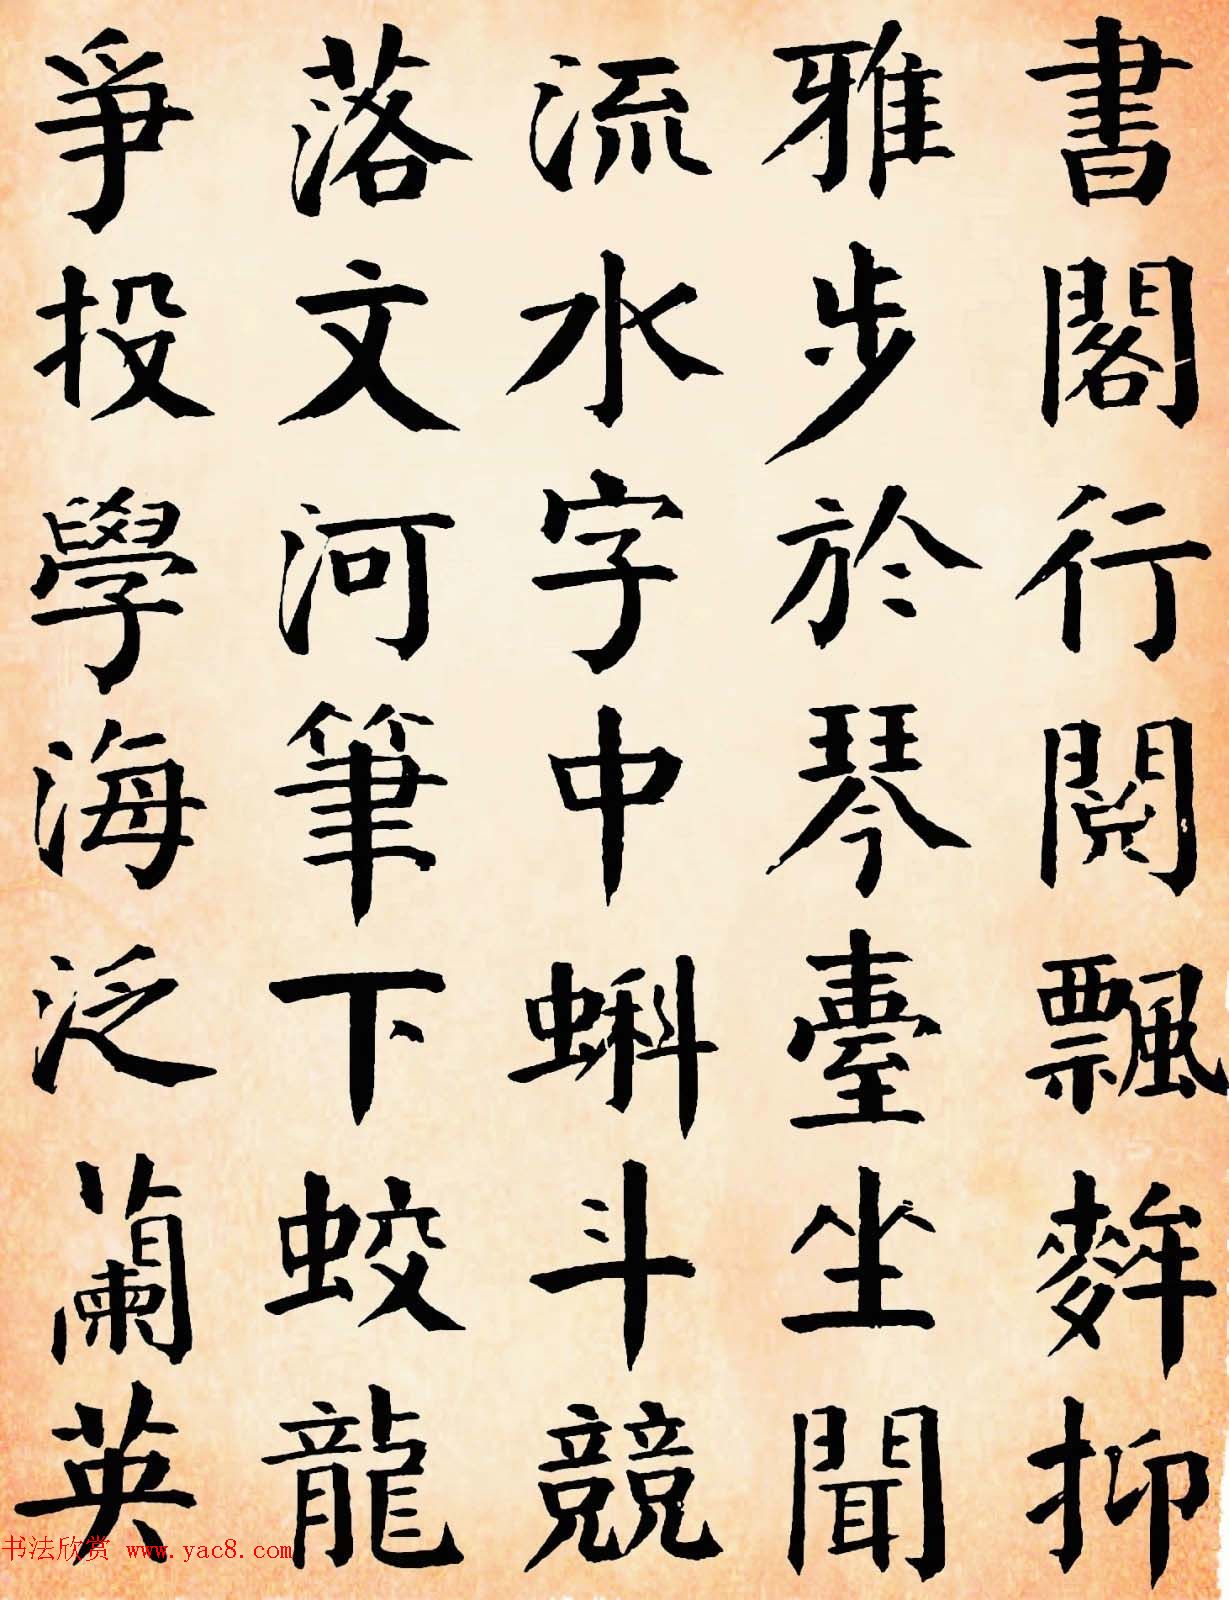 書閣行閱飄辤抑
雅步於琴臺坐聞
流水字中蝌斗競
落文河筆下蛟龍
爭投學海泛蘭英
书法欣赏 www.yac8.com